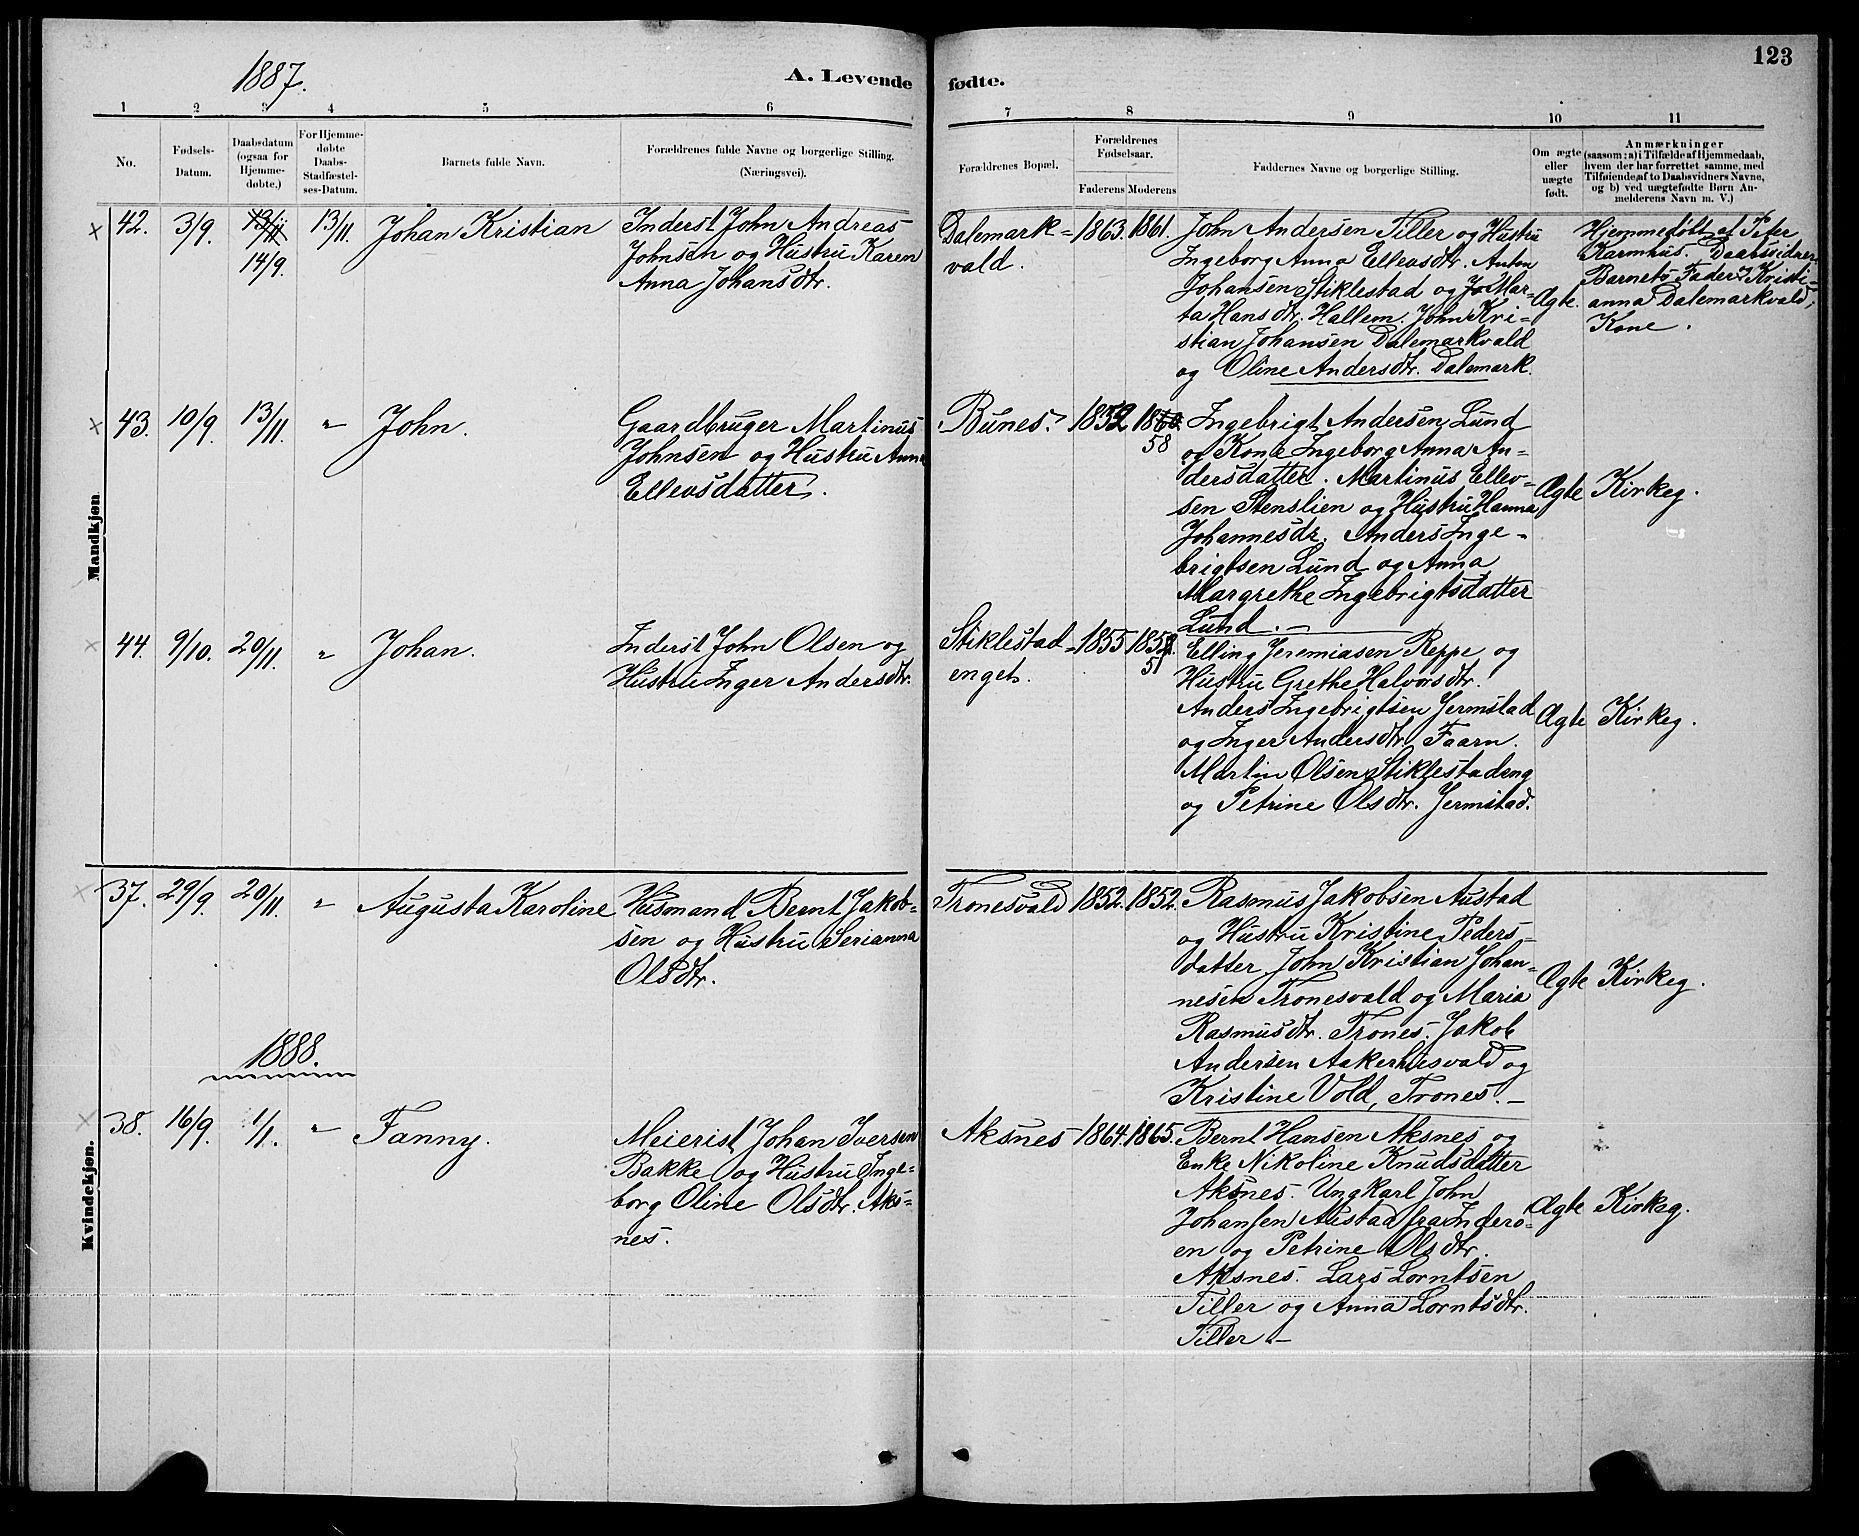 123
1887.
A. Levende fødte.
1 2 3 4 5 6 7 8 9 10 11
No.
Fødsels-
Datum.
Daabsdatum
(ogsaa for
Hjemme-
døbte.)
For Hjemme-
døbte
Daabs-
Stadfæstel-
ses-Datum.
Barnets fulde Navn.
Forældrenes fulde Navne og borgerlige Stilling.
(Næringsvei).
Forældrenes Bopæl.
Forældrenes
Fødselsaar.
Faderens Moderens
Faddernes Navne og borgerlige Stilling.
Om ægte
eller
uægte
født.
Anmærkninger
(saasom: a) i Tilfælde af Hjemmedaab,
hvem der har forrettet samme, med
Tilføiende af to Daabsvidners Navne,
og b) ved uægtefødte Børn An-
melderens Navn m. V.)
Mandkjøn.
× 42. 3/9. 13/11 14/9. 13/11. Johan Kristian
Inderst John Andreas
Johnsen og Hustru Karen
Anna Johansdtr.
Dalemark-
vald.
1863. 1861.
John Andersen Tiller og Hustru
Ingeborg Anna Ellevsdtr. Anton
Johansen Stiklestad og Mar-
ta Hansdtr. Hallem. John Kri-
stian Johansen Dalemarkvald
og Oline Andersdtr. Dalemark.
Ægte.
Hjemmedøbt af Peter
Karmhus. Daabsvidner:
Barnets Fader & Kristi-
anna Dalemarkvald,
Kone.
× 43. 10/9. 13/11. " John.
Gaardbruger Martinus
Johnsen og Hustru Anna
Ellevsdatter.
Bunes.
1852 1860.
58
Ingebrigt Andersen Lund
og Kone Ingeborg Anna An-
dersdatter. Martinus Ellev-
sen Stenslien og Hustru Hanna
Johannesdr. Anders Inge-
brigtsen Lund og Anna
Margrethe Ingebrigtsdatter
Lund.
Ægte Kirkeg.
× 44. 9/10. 20/11. " Johan.
Inderst John Olsen og
Hustru Inger Andersdtr.
Stiklestad-
enget.
1855
Elling Jeremiasen Reppe og
Hustru Grethe Halvorsdtr.
Anders Ingebrigtsen Jermstad
og Inger Andersdtr. Faarn.
Martin Olsen Stiklestadeng
og Petrine Olsdtr. Jermstad.
Ægte Kirkeg.
Kvindekjøn.
× 37. 29/9. 20/11. " Augusta Karoline
Husmand Bernt Jakob-
sen og Hustru Serianna
Olsdtr.
Tronesvald 1852. 1852.
Rasmus Jakobsen Austad
og Hustru Kristine Peders-
datter John Kristian Johan-
nesen Tronesvald og Maria
Rasmusdtr. Trones. Jakob
Andersen Aakerhusvald og
Kristine Vold, Trones.
Ægte Kirkeg.
1888.
× 38. 16/9. 1/1. " Fanny.
Meierist Johan Iversen
Bakke og Hustru Inge-
borg Oline Olsdtr. Aks-
nes.
Aksnes 1864. 1865.
Bernt Hansen Aksnes og
Enke Nikoline Knudsdatter
Aksnes. Ungkarl John
Johansen Austad fra Inderø-
en og Petrine Olsdtr.
Aksnes. Lars Lorntsen
Tiller og Anna Lorntsdtr.
Tiller
Ægte Kirkeg.